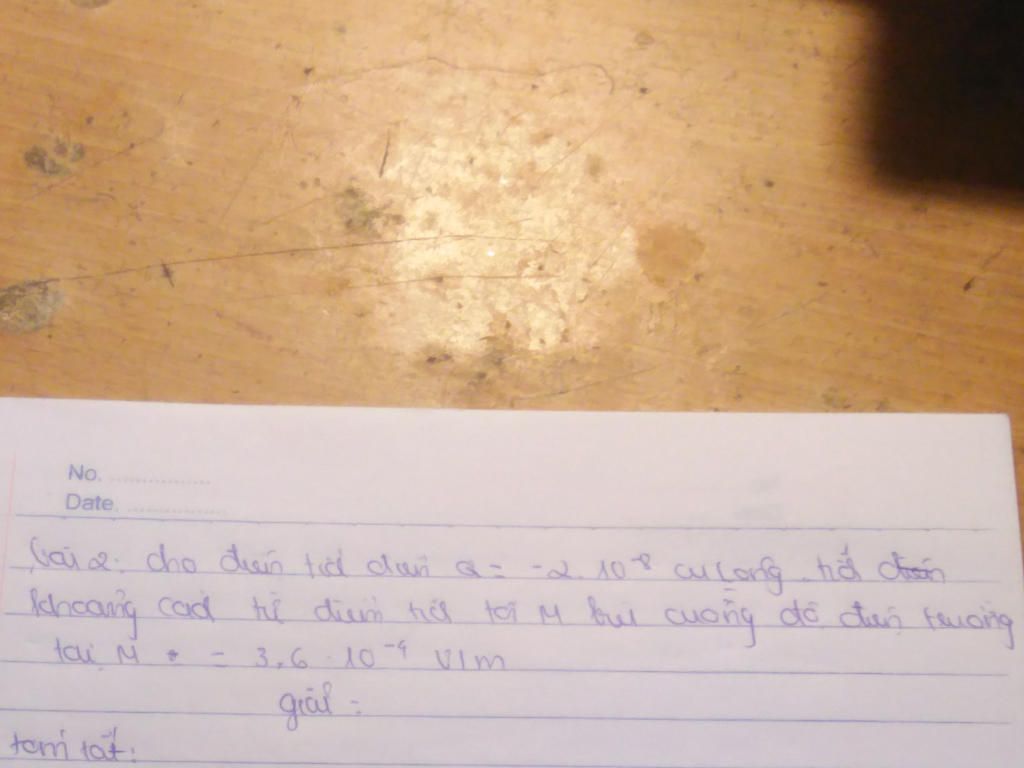 No. ................
Date ................
Bài 2: cho điện tích điểm Q = -2.10⁻⁸ culong. tích
khoảng cách từ điểm tới M khi cường độ điện trường
tại M = 3,6.10⁻⁴ V/m
giải:
tóm tắt: